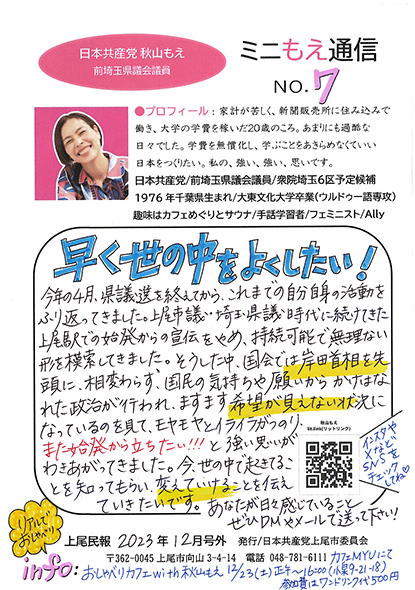 日本共産党 秋山もえ
前埼玉県議会議員
ミニもえ通信
NO.7
●プロフィール：家計が苦しく、新聞販売所に住み込みで
働き、大学の学費を稼いだ20歳のころ。あまりにも過酷な
日々でした。学費を無償化し、学ぶことをあきらめなくていい
日本をつくりたい。私の、強い、強い、思いです。
日本共産党/前埼玉県議会議員/衆院埼玉6区予定候補
1976年千葉県生まれ/大東文化大学卒業(ウルドゥー語専攻)
趣味はカフェめぐりとサウナ/手話学習者/フェミニスト/Ally
早く世の中をよくしたい！
今年の4月、県議選を終えてから、これまでの自分自身の活動を
ふり返ってきました。上尾市議・埼玉県議時代に続けてきた
上尾駅での始発からの宣伝をやめ、持続可能で無理ない
形を模索してきました。そうした中、国会では岸田首相を先
頭に、相変わらず、国民の気持ちや願いからかけはな
れた政治が行われ、ますます希望が見えない状況に
なっているのを見て、モヤモヤとイライラがつのり、
また始発から立ちたい!!!と強い思いが
わきあがってきました。今、世の中で起きてるこ
とを知ってもらい、変えていけることを伝え
ていきたいです。あなたが日々感じていること、
ぜひDMやメールで送って下さい!
秋山もえ
lit.link(リットリンク)
インスタや
Xなど
SNSを
チェック
してね
リアルで
おしゃべり
上尾民報 2023年12月号外 発行/日本共産党上尾市委員会
〒362-0045 上尾市向山3-4-14 電話 048-781-6111
info:おしゃべりカフェwith秋山もえ 12/23(土)正午〜16:00
カフェMYUにて
(小泉9-21-18)
参加費はワンドリンク代500円